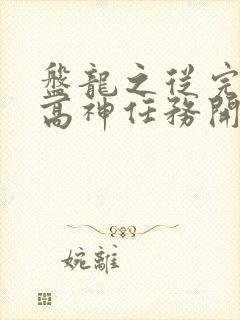 盤龍之從完
高神任務開
婉離